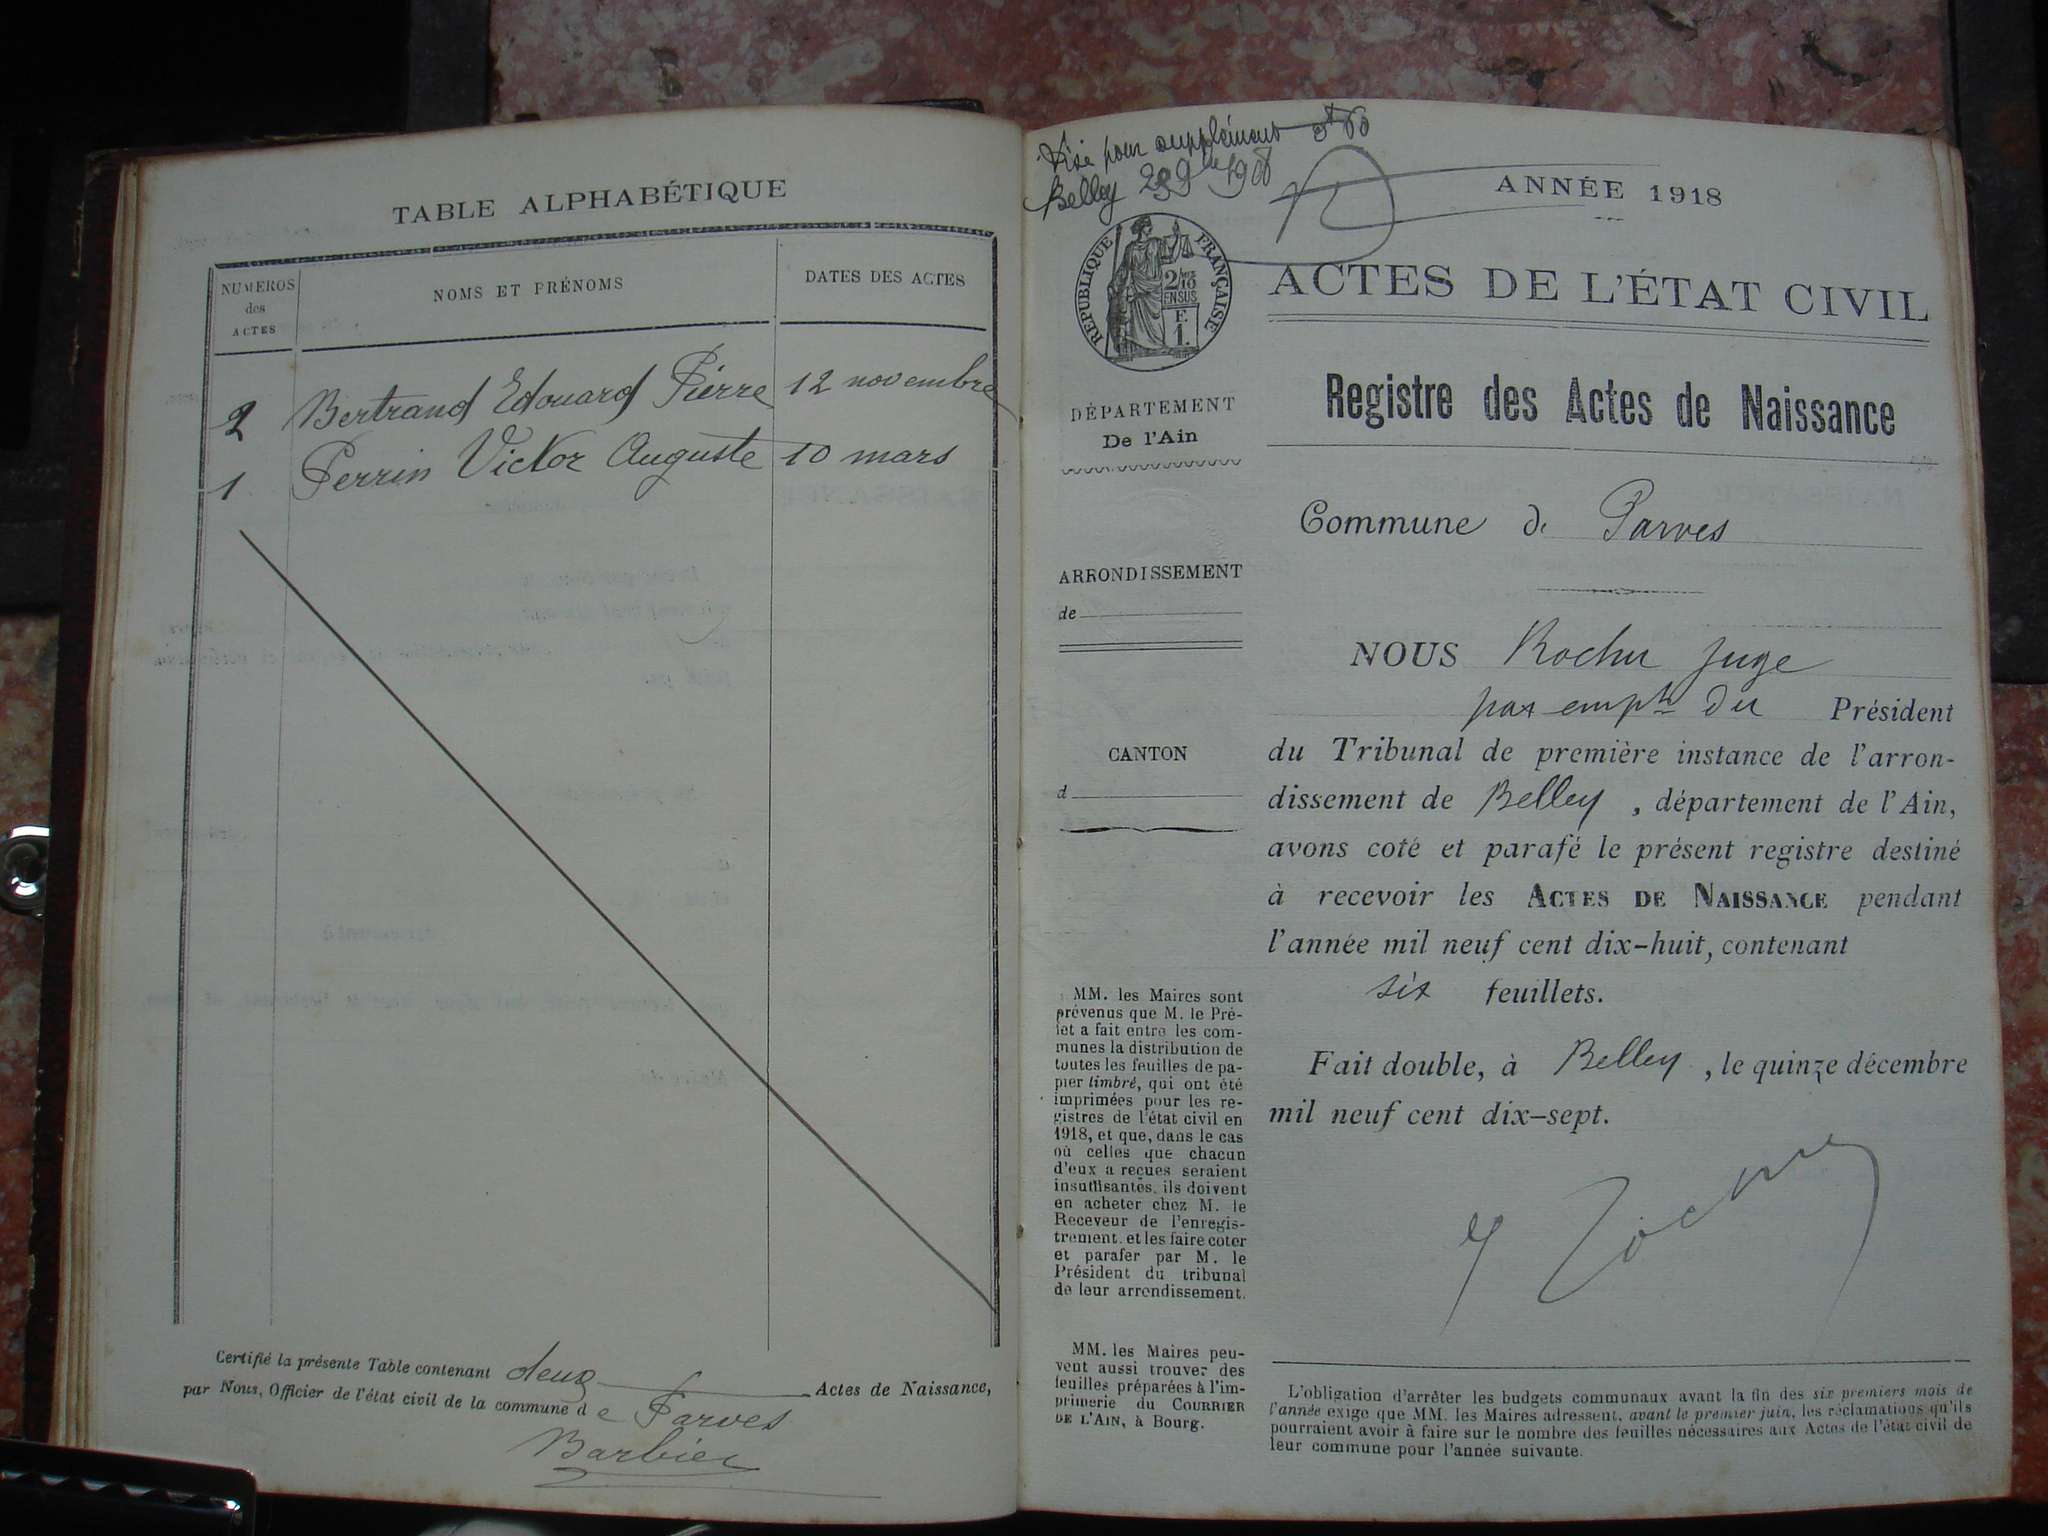 TABLE ALPHABÉTIQUE
NUMEROS des ACTES
NOMS ET PRÉNOMS
DATES DES ACTES
2 Bertrand Edouard Pierre 12 novembre
1 Perrin Victor Auguste 10 mars
Certifié la présente Table contenant deux Actes de Naissance,
par Nous, Officier de l'état civil de la commune de Parves
Barbier
Visé pour supplément
Belley
ANNÉE 1918
RÉPUBLIQUE FRANÇAISE
2/10 EN SUS
E
1.
ACTES DE L'ÉTAT CIVIL
Registre des Actes de Naissance
DÉPARTEMENT
De l'Ain
Commune de Parves
ARRONDISSEMENT
de
CANTON
d
NOUS Rocher juge
par empt du Président
du Tribunal de première instance de l'arron-
dissement de Belley, département de l'Ain,
avons coté et parafé le présent registre destiné
à recevoir les ACTES DE NAISSANCE pendant
l'année mil neuf cent dix-huit, contenant
six feuillets.
Fait double, à Belley, le quinze décembre
mil neuf cent dix-sept.
MM. les Maires sont
prévenus que M. le Pré-
fet a fait entre les com-
munes la distribution de
toutes les feuilles de pa-
pier timbré, qui ont été
imprimées pour les re-
gistres de l'état civil en
1918, et que, dans le cas
où celles que chacun
d'eux a reçues seraient
insuffisantes, ils doivent
en acheter chez M. le
Receveur de l'enregis-
trement, et les faire coter
et parafer par M. le
Président du tribunal
de leur arrondissement.
MM. les Maires peu-
vent aussi trouver des
feuilles préparées à l'im-
primerie du COURRIER
DE L'AIN, à Bourg.
L'obligation d'arrêter les budgets communaux avant la fin des six premiers mois de
l'année exige que MM. les Maires adressent, avant le premier juin, les réclamations qu'ils
pourraient avoir à faire sur le nombre des feuilles nécessaires aux Actes de l'état civil de
leur commune pour l'année suivante.